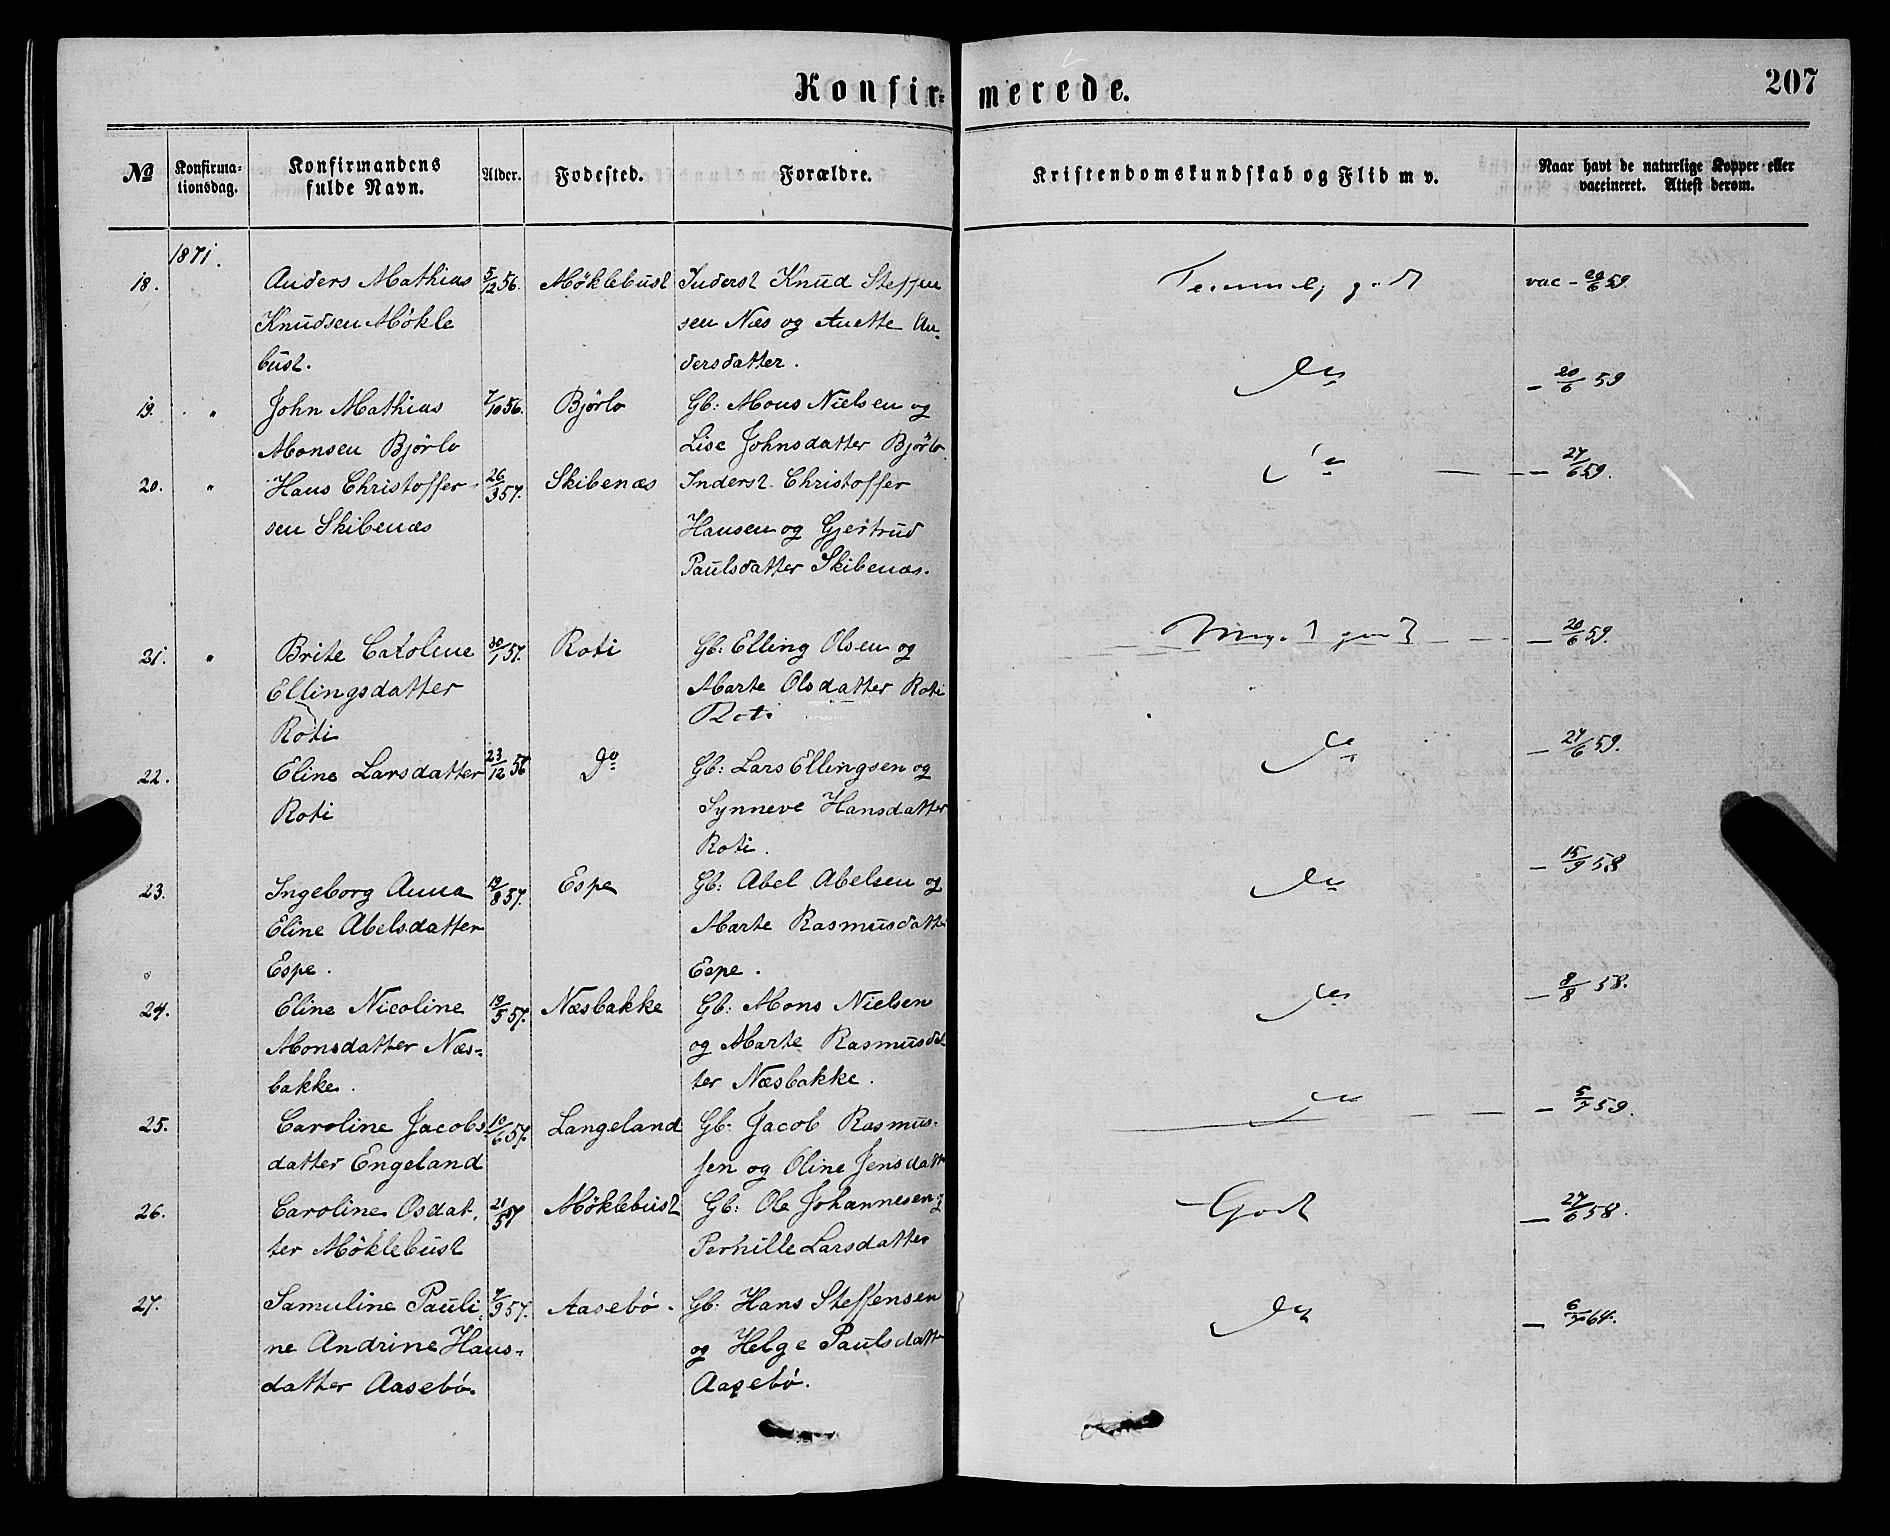 Konfirmerede.
207
No Konfirmationsdag. Konfirmandens fulde Navn. Alder. Fødested. Forældre. Kristendomskundskab og Flid m v. Naar havt de naturlige Kopper eller vaccineret. Attest derom.
1871.
18. Anders Mathias 5/12 56. Møklebust Inderst Knud Steffen Temmelig godt vac - 29/6 59.
Knudsen Møkle sen Næs og Anette An
bust. dersdatter.
19. " John Mathias 7/10 56. Bjørlo Gb: Mons Nielsen og Do - 20/6 59
Monsen Bjørlo Lise Johnsdatter Bjørlo
20. " Hans Christoffer 26/3 57. Skibenæs Inderst Christoffer Do - 27/6 59.
sen Skibenæs Hansen og Gjertrud
Paulsdatter Skibenæs.
21. " Brite Caroline 30/1 57. Roti Gb: Elling Olsen og Meget godt - 20/6 59.
Ellingsdatter Marte Olsdatter Roti
Roti Roti
22. Eline Larsdatter 23/12 56 Do Gb: Lars Ellingsen og Do - 27/6 59.
Roti Synneve Hansdatter
Roti.
23. Ingeborg Anna 19/8 57. Espe Gb: Abel Abelsen og Do - 15/9 58
Eline Abelsdatter Marte Rasmusdatte
Espe. Espe.
24. Eline Nicoline 19/5 57. Næsbakke Gb: Mons Nielsen Do - 8/8 58.
Monsdatter Næs- og Marte Rasmusdat
bakke. ter Næsbakke.
25. Caroline Jacobs 10/6 57. Langeland Gb: Jacob Rasmus- Do - 5/7 59.
datter Engeland sen og Oline Jensdatt
26. Caroline Osdat. 21/5 57 Møklebust Gb: Ole Johannesen og Godt - 27/6 58.
ter Møklebust Pernille Larsdatter
27. Samuline Pauli 7/9 57. Aasebø. Gb: Hans Steffensen Do - 6/7 64.
ne Andrine Hans- og Helge Paulsdatte
datter Aasebø. Aasebø.